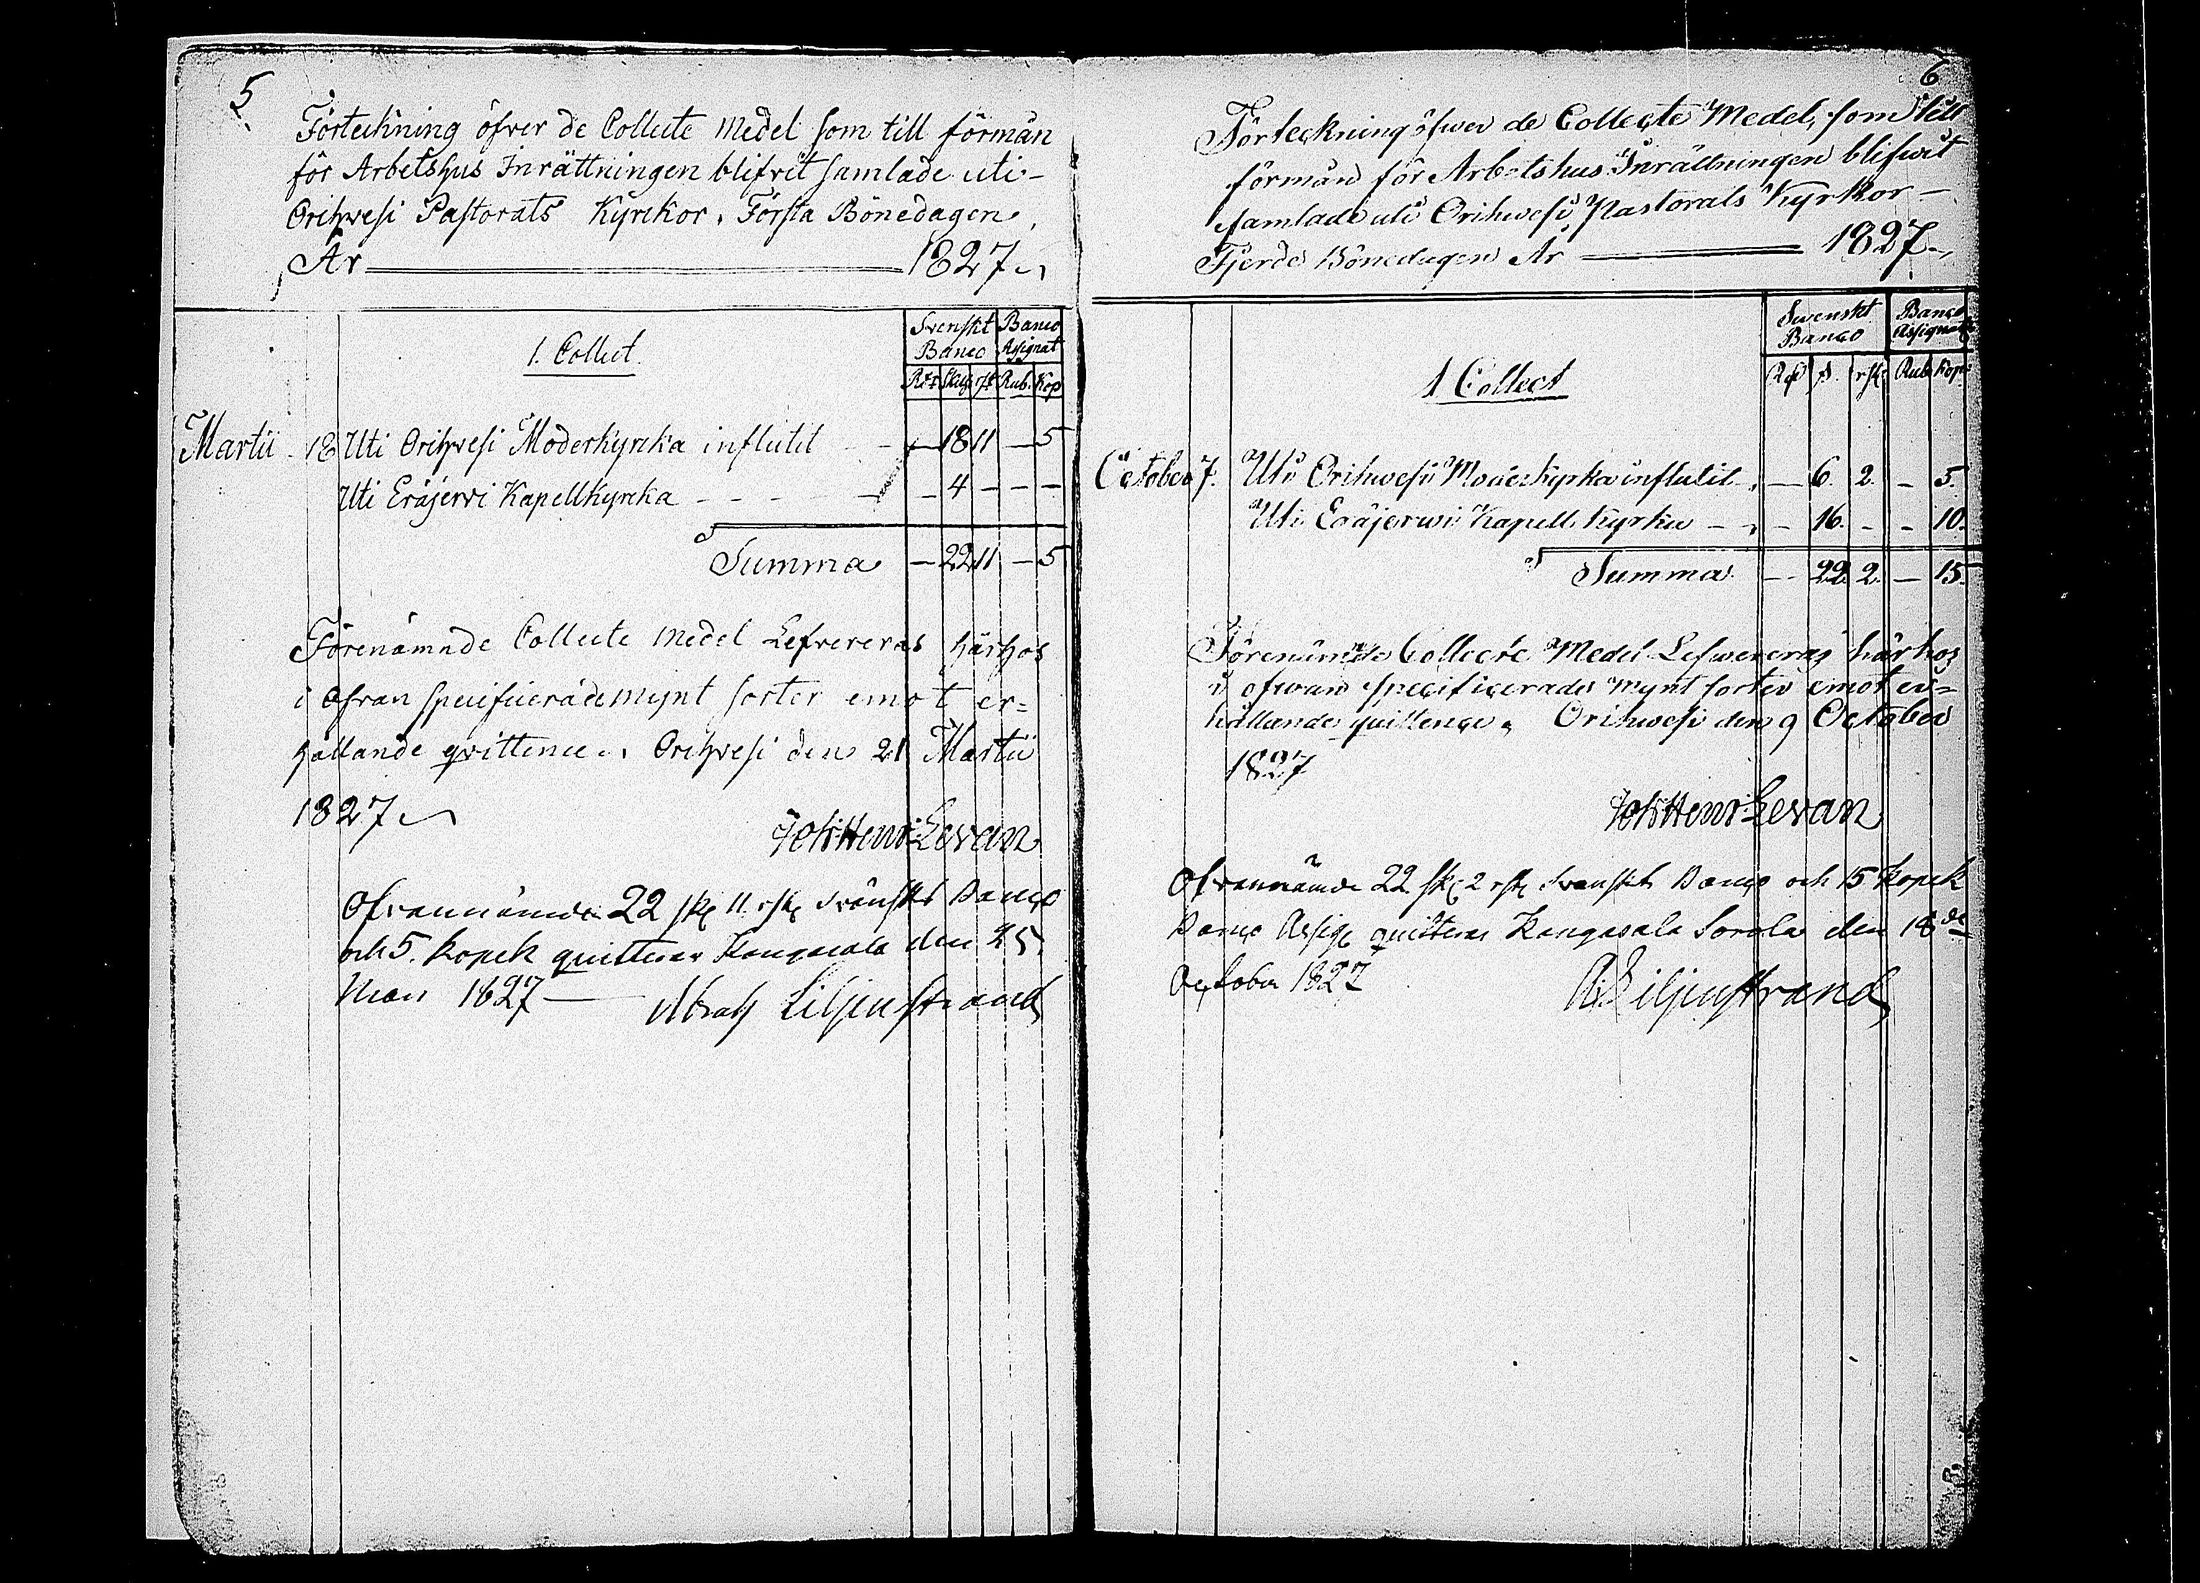 5
Förteckning öfver de Collecte Medel som till förmån
för Arbetshus Inrättningen blifvit samlade uti
Orihvesi Pastorats Kyrkor, Första Bönedagen,
År 1827
Svenskt Banco
Banco Assignat
1. Collect.
Rdr Skig rst Rub. Kop
Martii 18 Uti Orihvesi Moderkyrka influtit — 18 11 — 5
Uti Eräjervi Kapellkyrka — 4 — — —
Summa — 22 11 — 5
Förenämnde Collecte Medel Lefvereras härhos
i ofvan specificerade mynt sorter emot er=
hållande qvittence. Orihvesi den 21 Martii
1827
Joh: Henr: Levan
Ofvannämde 22 sk 11 rst Svenskt Banco
och 5. kopek quitteras Kangasala den 25
Mars 1827 — Abrah Liljenstrand
6
Förteckning öfwer de Collecte Medel, som till
förmån för Arbetshus Inrättningen blifwit
samlade uti Orihwesi Pastorats Kyrkor —
Fjerde Bönedagen År 1827
Swenskt Banco
Banco Assignat
1 Collect
Rd s. rst Rub Kop
October 7. Uti Orihwesi Moderkyrka influtit — 6. 2. — 5.
Uti Eräjerwi Kapell Kyrka — 16. — — 10.
Summa — 22 2. — 15.
Förenämnde Collecte Medel Lefwereras härhos
i ofwan specificerade mynt sorter emot er=
hållande quittence. Orihwesi den 9 October
1827
Joh: Henr: Levan
Ofvannämde 22 sk 2 rst Svenskt Banco och 15 kopek
Banco Assig quitteras Kangasala Sorola den 18de
October 1827
A: Liljenstrand